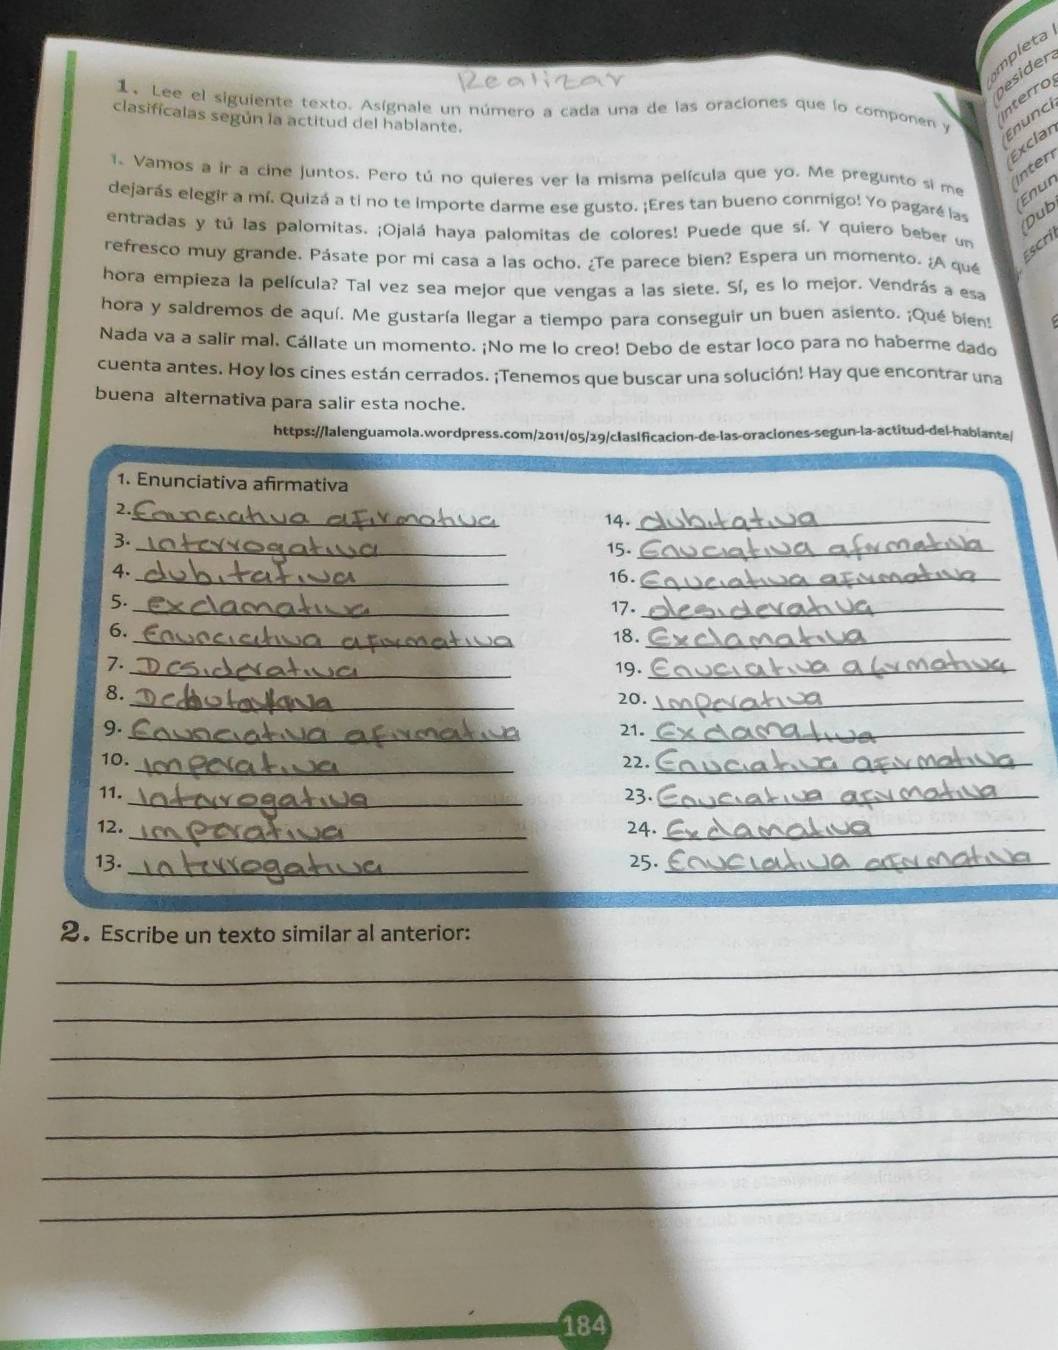 Realizar
1. Lee el siguiente texto. Asígnale un número a cada una de las oraciones que lo componen y
clasifícalas según la actitud del hablante.
1. Vamos a ir a cine juntos. Pero tú no quieres ver la misma película que yo. Me pregunto si me
dejarás elegir a mí. Quizá a ti no te importe darme ese gusto. ¡Eres tan bueno conmigo! Yo pagaré las
entradas y tú las palomitas. ¡Ojalá haya palomitas de colores! Puede que sí. Y quiero beber un
refresco muy grande. Pásate por mi casa a las ocho. ¿Te parece bien? Espera un momento. ¿A qué
hora empieza la película? Tal vez sea mejor que vengas a las siete. Sí, es lo mejor. Vendrás a esa
hora y saldremos de aquí. Me gustaría llegar a tiempo para conseguir un buen asiento. ¡Qué bien!
Nada va a salir mal. Cállate un momento. ¡No me lo creo! Debo de estar loco para no haberme dado
cuenta antes. Hoy los cines están cerrados. ¡Tenemos que buscar una solución! Hay que encontrar una
buena alternativa para salir esta noche.
https://lalenguamola.wordpress.com/2011/05/29/clasificacion-de-las-oraciones-segun-la-actitud-del-hablante/
1. Enunciativa afirmativa
2. afirmativa
3. Interrogativa
4. dubitativa
5. exclamativa
6. Enunciativa afirmativa
7. Desiderativa
8.
9. Enunciativa afirmativa
10. Imperativa
11. Interrogativa
12. imperativa
13. interrogativa
14. dubitativa
15. Enuciativa afirmativa
16. Enuciativa afirmativa
17. desiderativa
18. Exclamativa
19. Enuciativa afirmativa
20. imperativa
21. Exclamativa
22. Enuciativa afirmativa
23. Enuciativa afirmativa
24. Exclamativa
25. Enuciativa afirmativa
2. Escribe un texto similar al anterior:
184
completa l
(Desidera
(Interrog
(Enuncia
(Exclam
(Interr
(Enun
(Dubi
Escrib